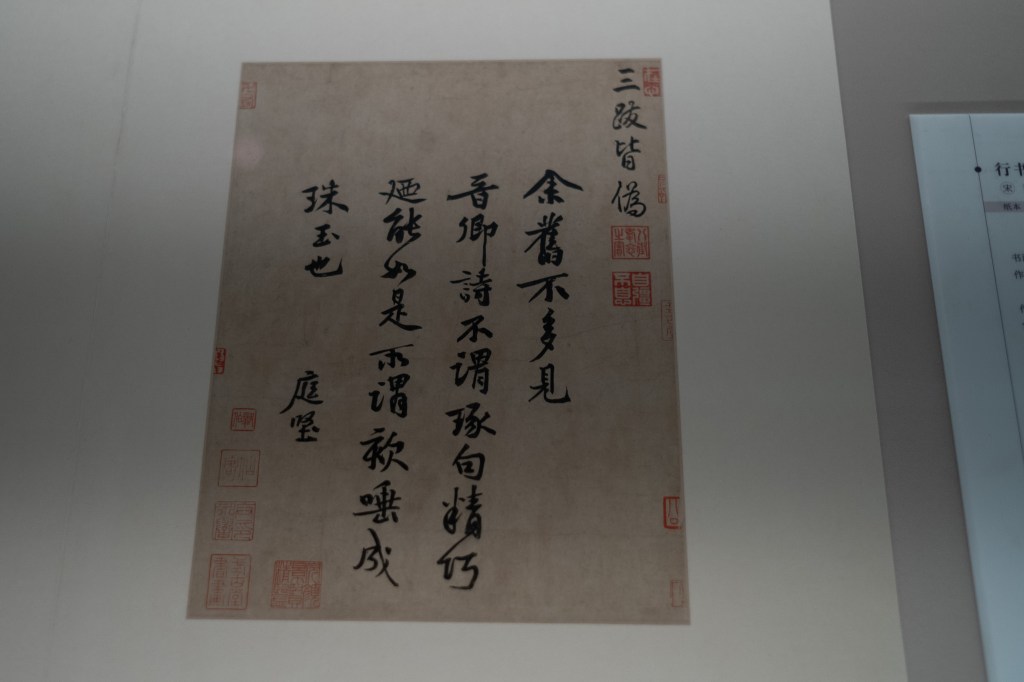 三跋皆偽
余舊不多見
晉卿詩不謂琢句精巧
廼能如是所謂欬唾成
珠玉也
庭堅
行书
宋
纸本